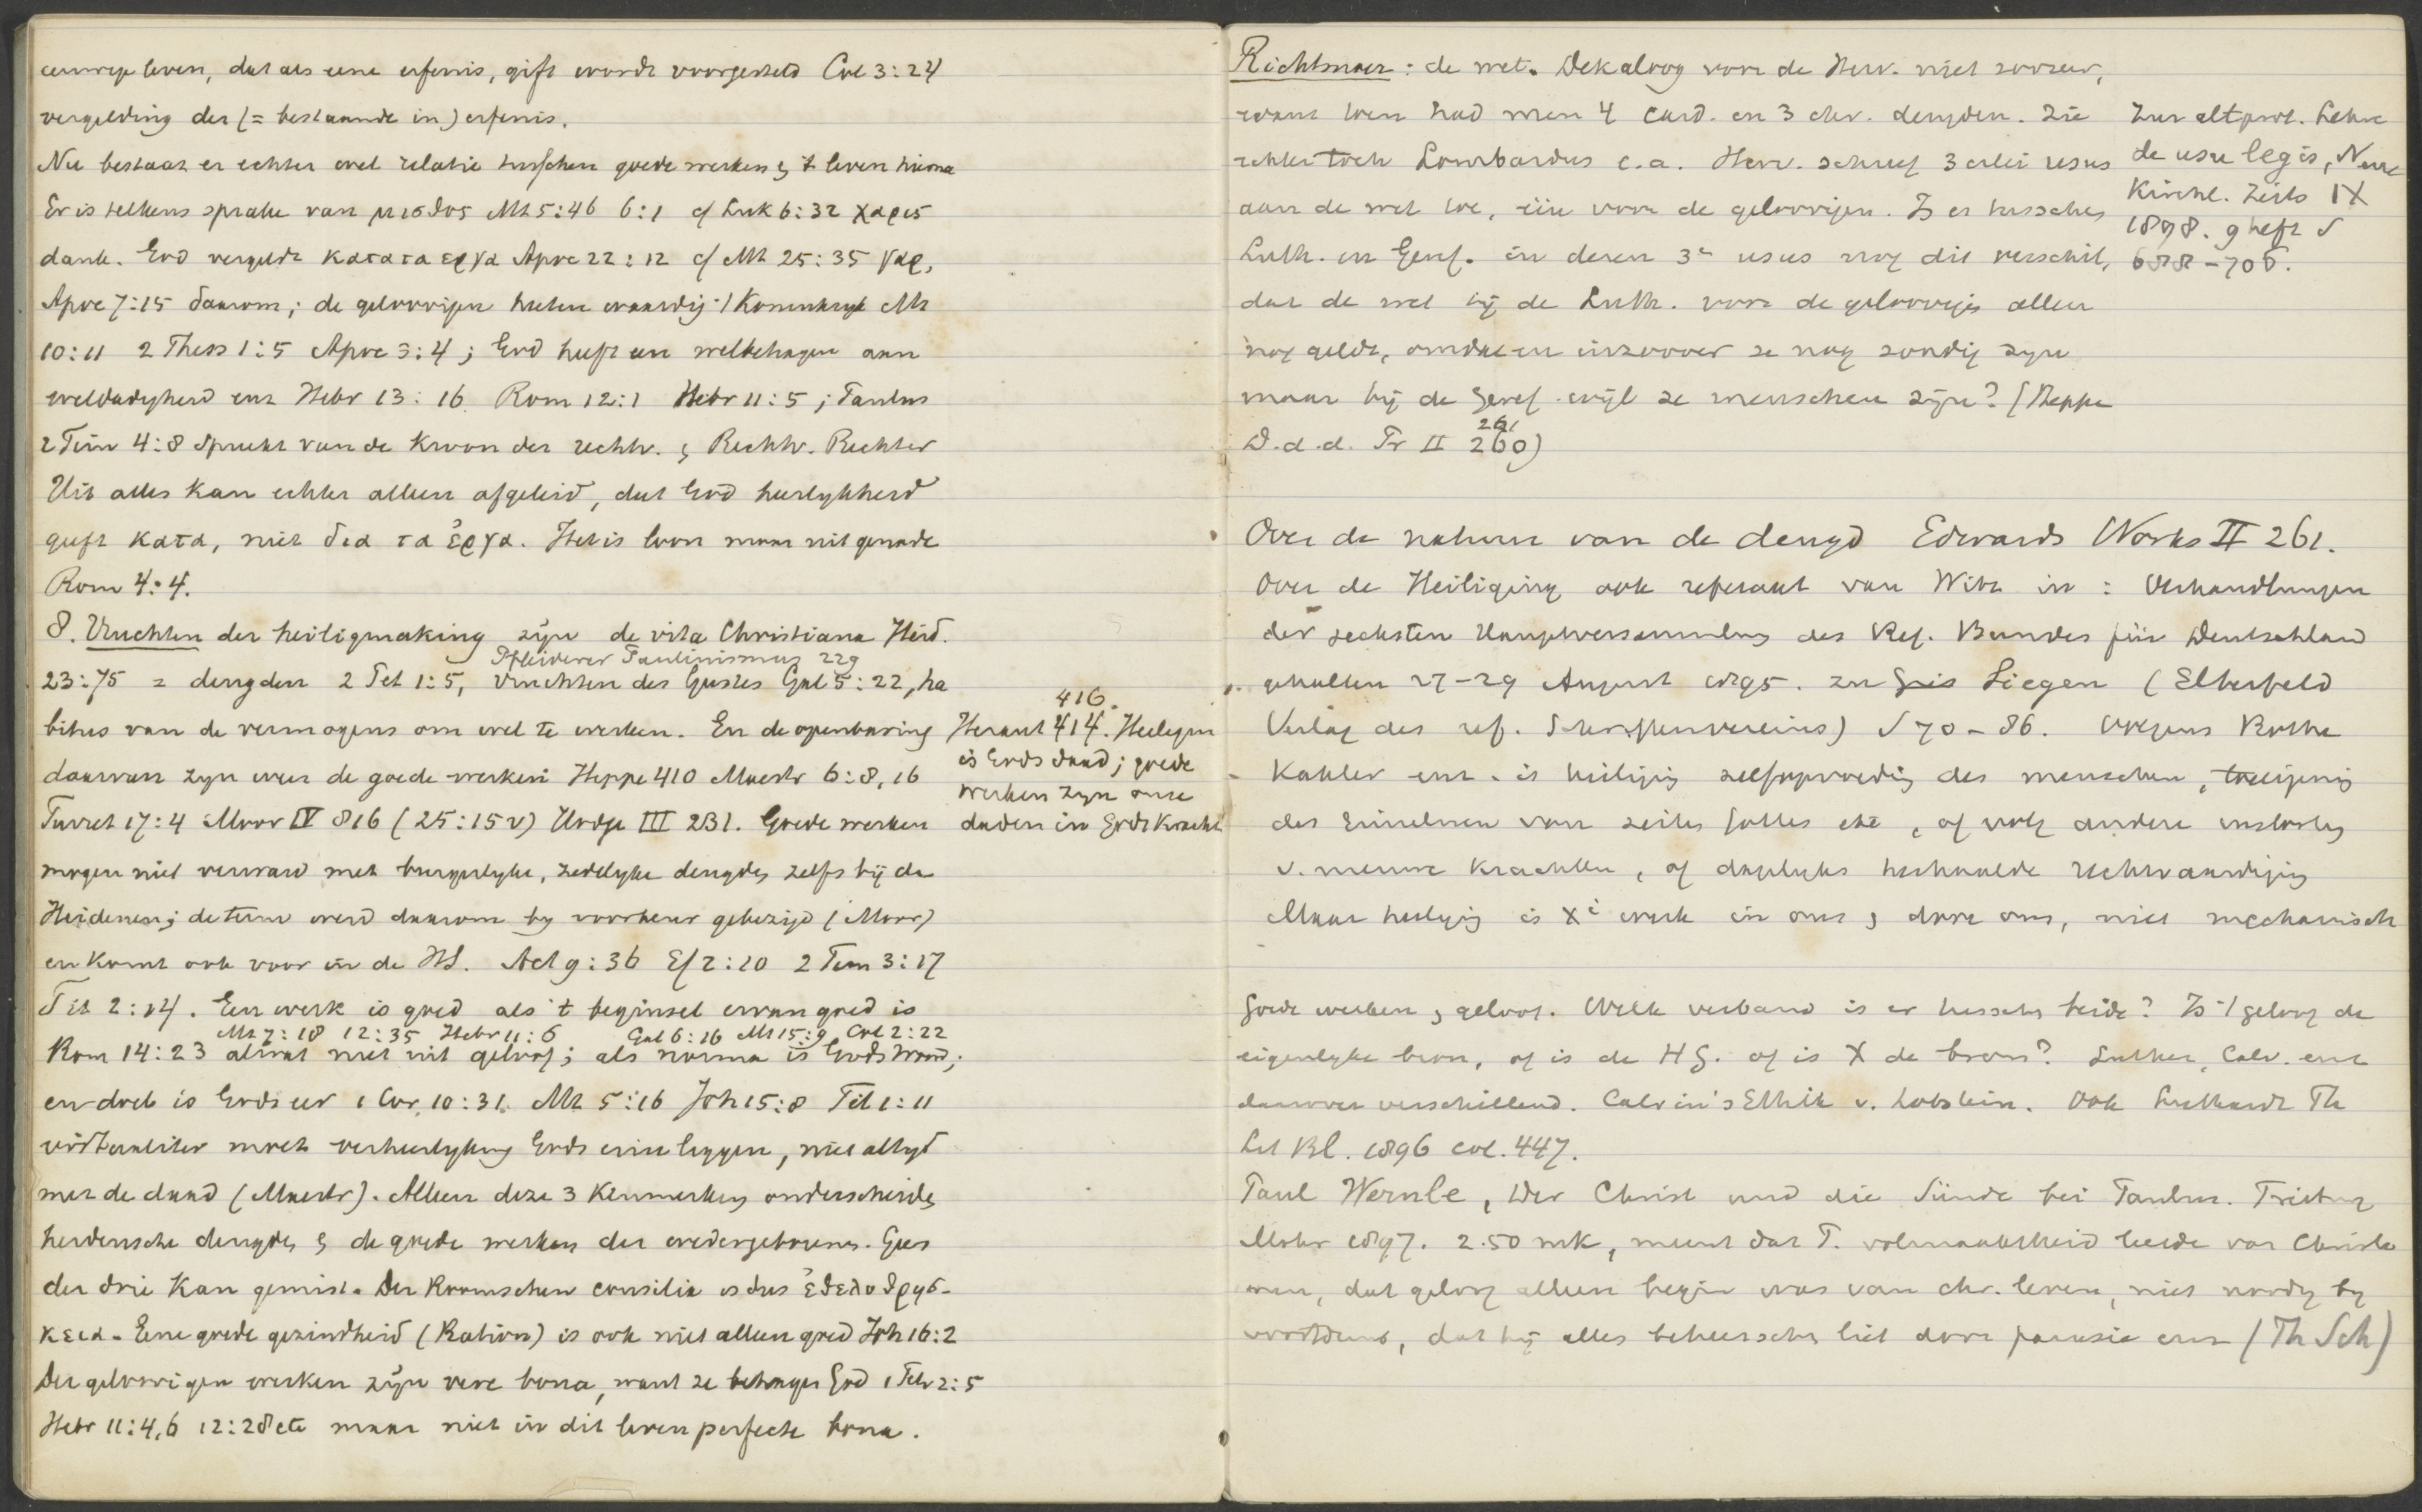 eeuwige leven, dat als eene erfenis, gift wordt voorgesteld Col 3:24
vergelding der (= bestaande in) erfenis.
Nu bestaat er echter wel relatie tusschen goede werken & 't leven hierna
Er is telkens sprake van μισθος Mt 5:46 6:1 cf Luk 6:32 χαρις
dank. God vergeldt κατα τα εργα Apoc 22:12 cf Mt 25:35 γαρ,
Apoc 7:15 daarom; de geloovigen heeten waardig 't Koninkryk Mt
10:11 2 Thess 1:5 Apoc 3:4; God heeft een welbehagen aan
weldadigheid enz Hebr 13:16 Rom 12:1 Hebr 11:5; Paulus
2 Tim 4:8 spreekt van de Kroon der rechtv. & Rechtv. Rechter
Uit alles kan echter alleen afgeleid, dat God heerlykheid
geeft κατα, niet δια τα ἐργα. Het is loon maar uit genade
Rom 4:4.
8. Vruchten der heiligmaking zijn de vita Christiana Heid.
Pfleiderer Paulinismus 229
23:75 = deugden 2 Pet 1:5, vruchten des Geestes Gal 5:22, ha
bitus van de vermogens om wel te werken. En de openbaring
daarvan zyn weer de goede werken Heppe 410 Mastr 6:8,16
Turret 17:4 Moor IV 816 (25:15 v) Hodge III 231. Goede werken
mogen niet verward met burgerlyke, zedelyke deugden zelfs bij de
Heidenen; de term werd daarom by voorkeur gebezigd (Moor)
en komt ook voor in de HS. Act 9:36 Ef 2:10 2 Tim 3:17
Tit 2:14. Een werk is goed als 't beginsel ervan goed is
Mt 7:18 12:35 Hebr 11:6 Gal 6:16 Mt 15:9 Col 2:22
Rom 14:23 alwat niet uit geloof; als norma is Gods Woord;
en doel is Gods eer 1 Cor 10:31. Mt 5:16 Joh 15:8
moet verheerlyking Gods erin liggen, niet altyd
met de daad (Mastr). Alleen deze 3 kenmerken onderscheiden
heidensche deugden & de goede werken der wedergeborenen. Geen
der drie kan gemist. Der Roomschen consilia is dus ἐθελοθρησ-
κεια. Eene goede gezindheid (Ration) is ook niet alleen goed Joh 16:2
Der geloovigen werken zijn vere bona, want ze behagen God 1 Petr 2:5
Hebr 11:4,6 12:28 etc maar niet in dit leven perfecte bona.
416.
Heraut 414. Heiligen
is Gods daad; goede
werken zyn onze
daden in Gods kracht
Richtsnoer: de wet. Dekaloog voor de Herv. niet zoozeer,
want toen had men 4 card. en 3 chr. deugden. Zie
echter toch Lombardus e.a. Herv. schreef 3 erlei usus
aan de wet toe, één voor de geloovigen. Is er tusschen
Luth. en Geref. in deren 3e usus nog dit verschil,
dat de wet bij de Luth. voor de geloovigen alleen
nog geldt, omdat en inzoover ze nog zondig zyn
maar bij de Geref. wijl ze menschen zijn? (Heppe
261
D.d.d. Pr II 260)
Zur altprot. Lehre
de usu legis, Neue
Kirchl. Zeits IX
1898. 9 heft S
Over de natuur van de deugd Edwards Works II 261.
Over de Heiliging ook referaat van Witz in: Verhandlungen
der sechsten Hauptversammlung des Ref. Bundes für Deutschland
gehalten 27-29 August 1895. zu Siegen (Elberfeld
Verlag des ref. Schriftenvereins) S 70-86. Volgens Rothe
Kahler enz. is heiliging zelfopvoeding des menschen, toeeigening
des Einzelnen van zeiten Gottes etc, of
v. nieuwe krachten, of dagelyks herhaalde rechtvaardiging
Maar heiliging is Xi werk in ons & door ons, niet mechanisch
Goede werken & geloof. Welk verband is er tusschen beide? Is 't geloof de
eigenlyke bron, of is de HG. of is X de bron? Luther, Calv. enz
daarover verschillend. Calvin's Ethik v. Lobstein. Ook Luthardt Th
Lit Bl. 1896 col. 447.
Paul Wernle, Der Christ und die Sünde bei Paulus. Freiburg
Mohr 1897. 2.50 mk, meent dat P. volmaaktheid leerde van Christe
nen, dat geloof alleen begin was van chr. leven, niet noodig by
voortduur, dat hij alles beheerschen liet door parusie enz (Th Sch)